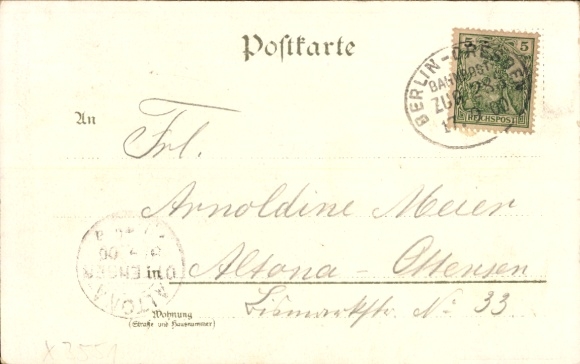 Postkarte
5 5
REICHSPOST
BERLIN-DRESDEN
BAHNPOST
ZUG
An
Frl.
Arnoldine Meier
in Altona-Ottensen
Bismarkstr. No 33
Wohnung
(Straße und Hausnummer)
ALTONA
00